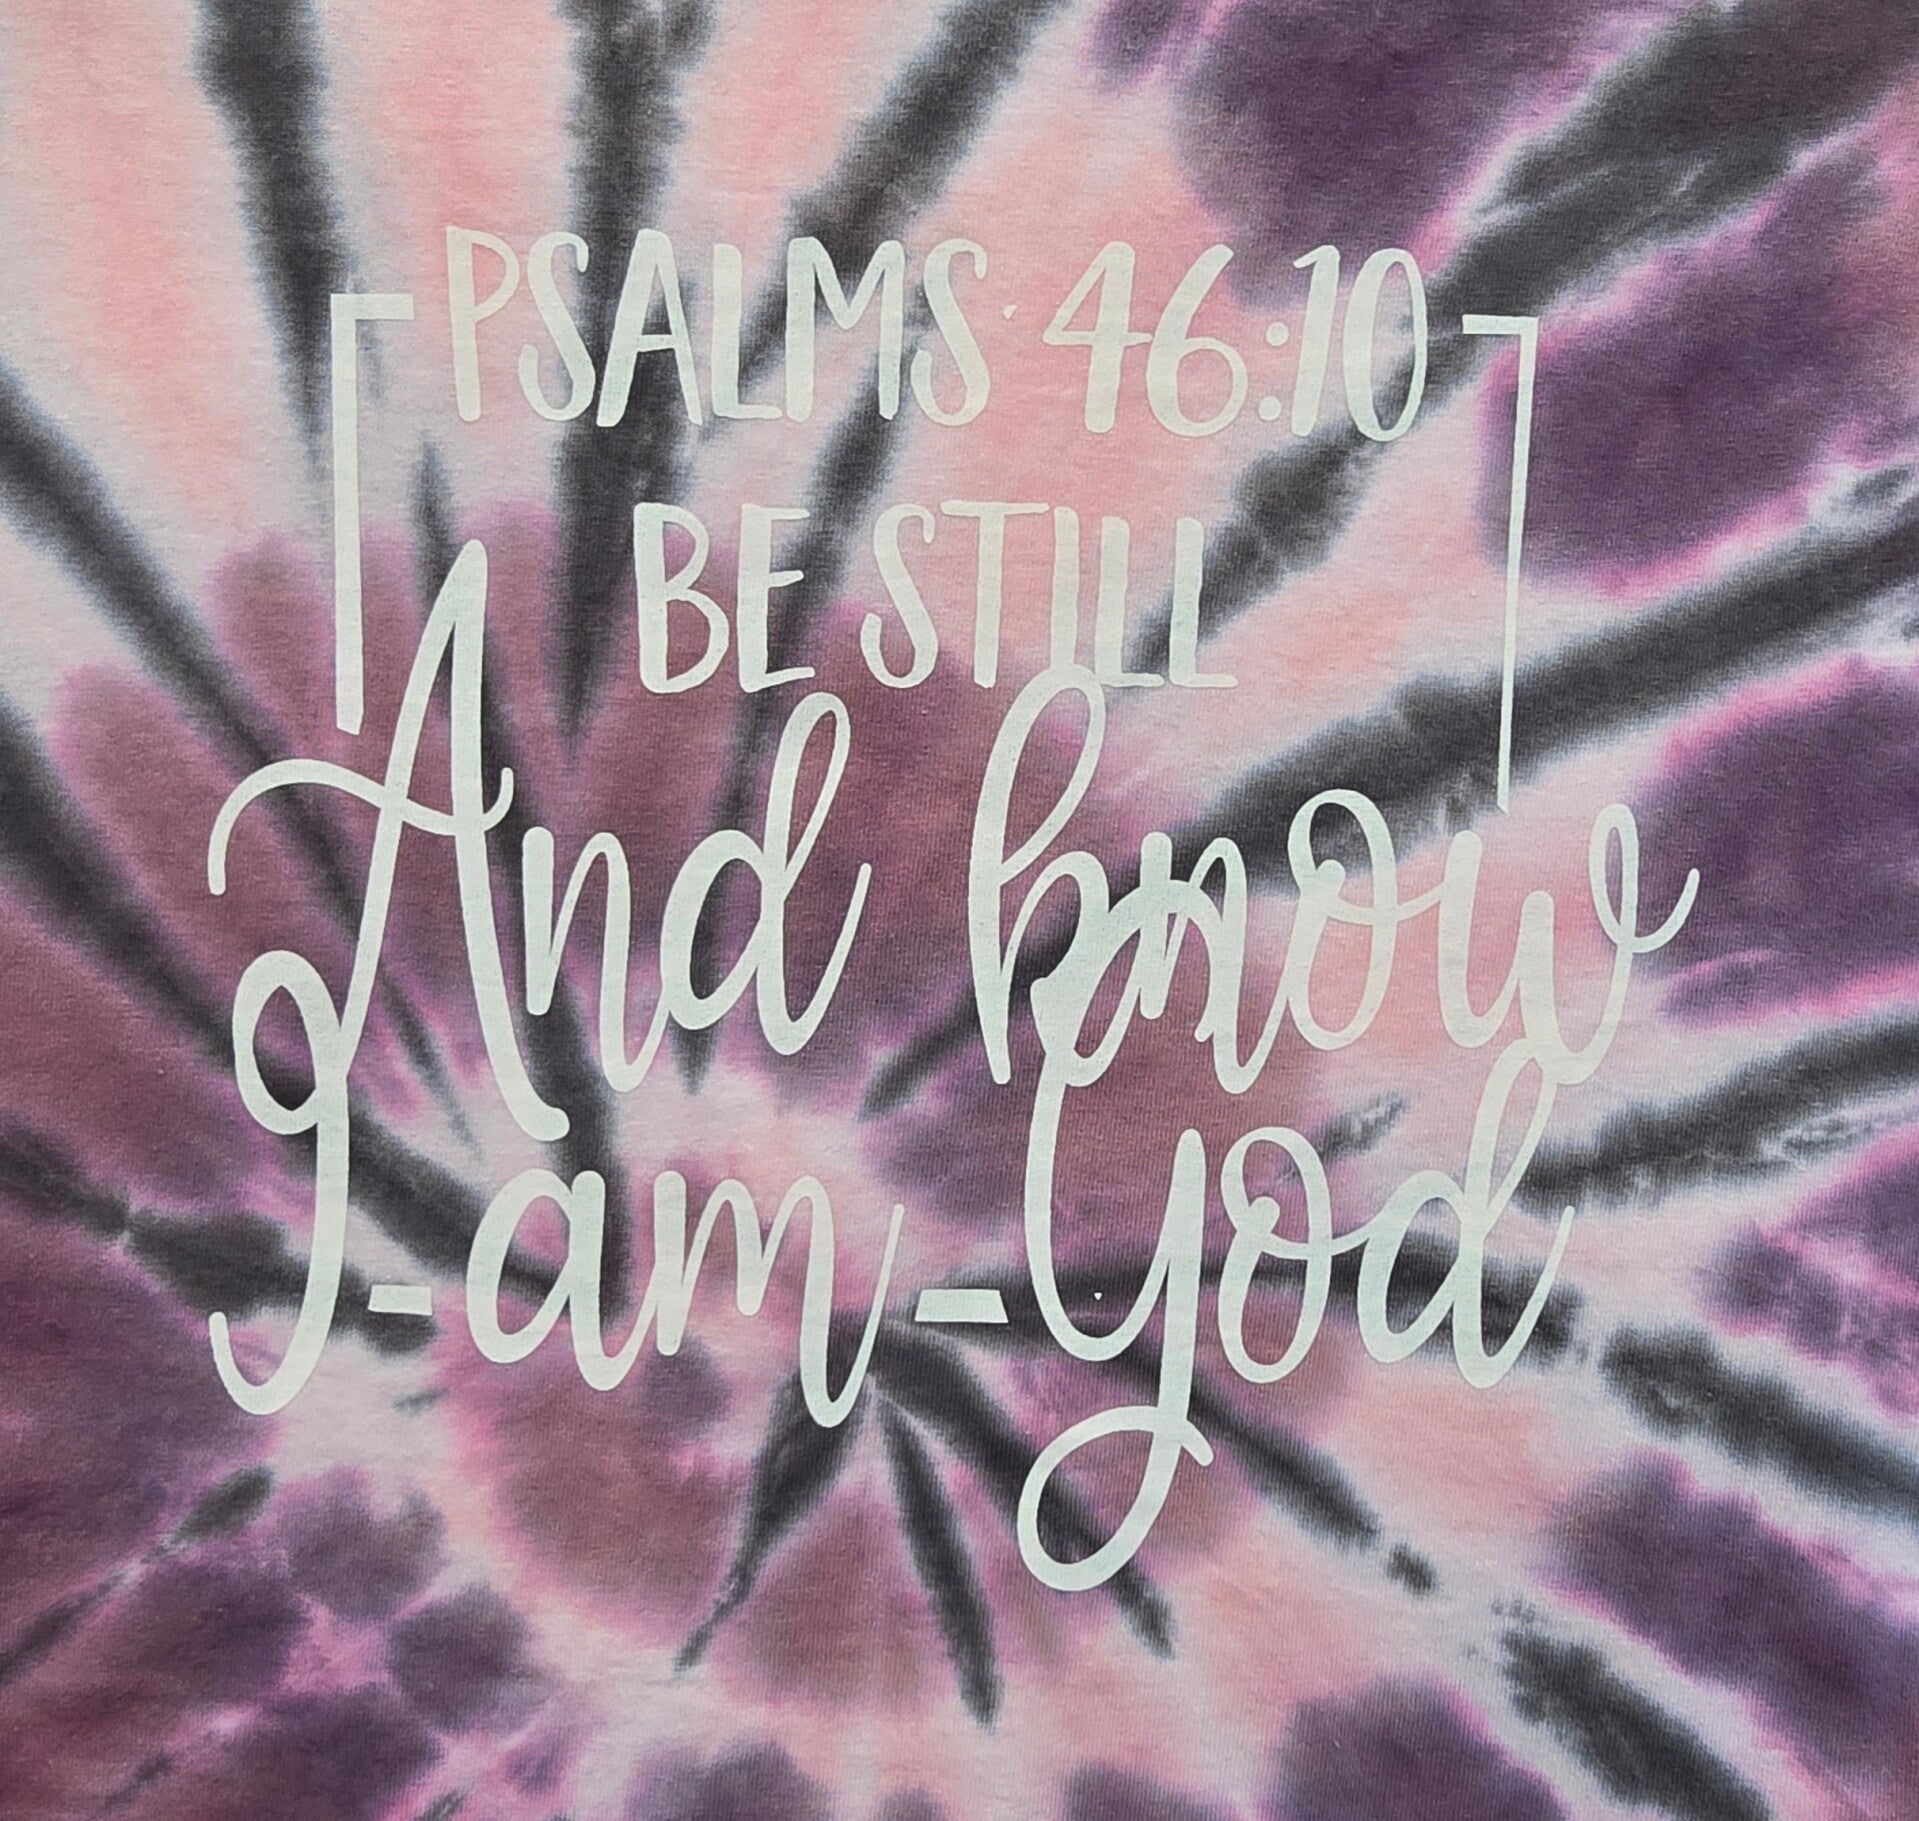 PSALMS 46:10
BE STILL
And know
I am God